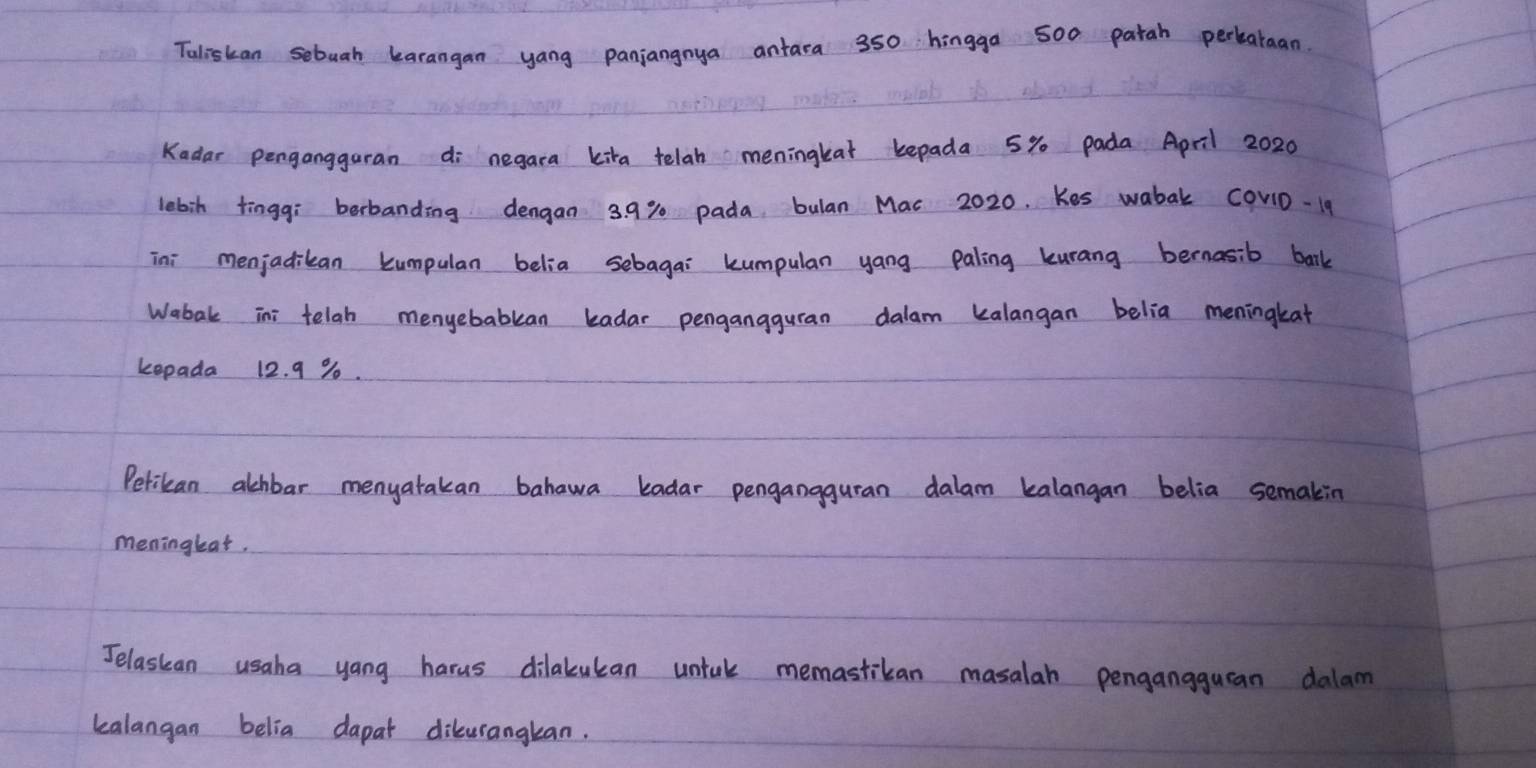 Tuliskan sebuah karangan yang panjangnya antara 350 hingga 500 patah perkataan.
Kadar pengangguran di negara kita telah meningkat kepada 5% pada April 2020
lebih tinggi berbanding dengan 3.9% pada bulan Mac 2020. Kes wabak COVID-19
ini menjadikan kumpulan belia sebagai kumpulan yang paling kurang bernasib baik
Wabak ini telah menyebabkan kadar pengangguran dalam kalangan belia meningkat
kepada 12.9 %.
Petikan akhbar menyatakan bahawa kadar pengangguran dalam kalangan belia semakin
meningkat.
Jelaskan usaha yang harus dilakukan untuk memastikan masalah pengangguran dalam
kalangan belia dapat dikurangkan.